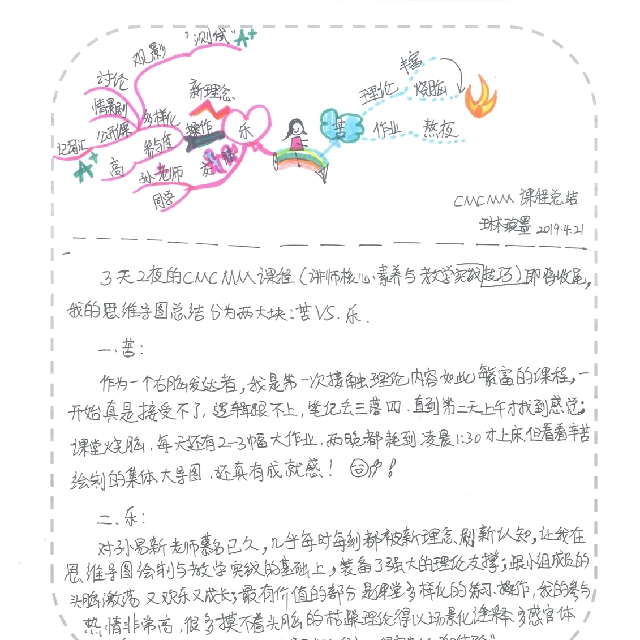 "测试" A+
观影
讨论
情景剧
多样化
公开课
记笔记
A+
高
参与度
孙老师
同学
新理念
操作
乐
苦
理论
丰富
烧脑
作业
熬夜
CMCMM 课程总结
2019.4.21
3天2夜的CMCMM课程(讲师核心素养与教学实战技巧)即将收尾,
我的思维导图总结分为两大块:苦VS.乐.
一.苦:
作为一个右脑发达者,我是第一次接触理论内容如此繁富的课程,一
开始真是接受不了,逻辑跟不上,笔记丢三落四.直到第二天上午才找到感觉;
课堂烧脑,每天还有2-3幅大作业,两晚都耗到凌晨1:30才上床,但看着辛苦
绘制的集体大导图,还真有成就感!
二.乐:
对孙易新老师慕名已久,几乎每时每刻都被新理念刷新认知,让我在
思维导图绘制与教学实战的基础上,装备了强大的理论支撑;跟小组成员的
头脑激荡又欢乐又成长;最有价值的部分是课堂多样化的练习、操作,我的参与
热情非常高,很多摸不着头脑的枯燥理论得以场景化诠释,多感官体